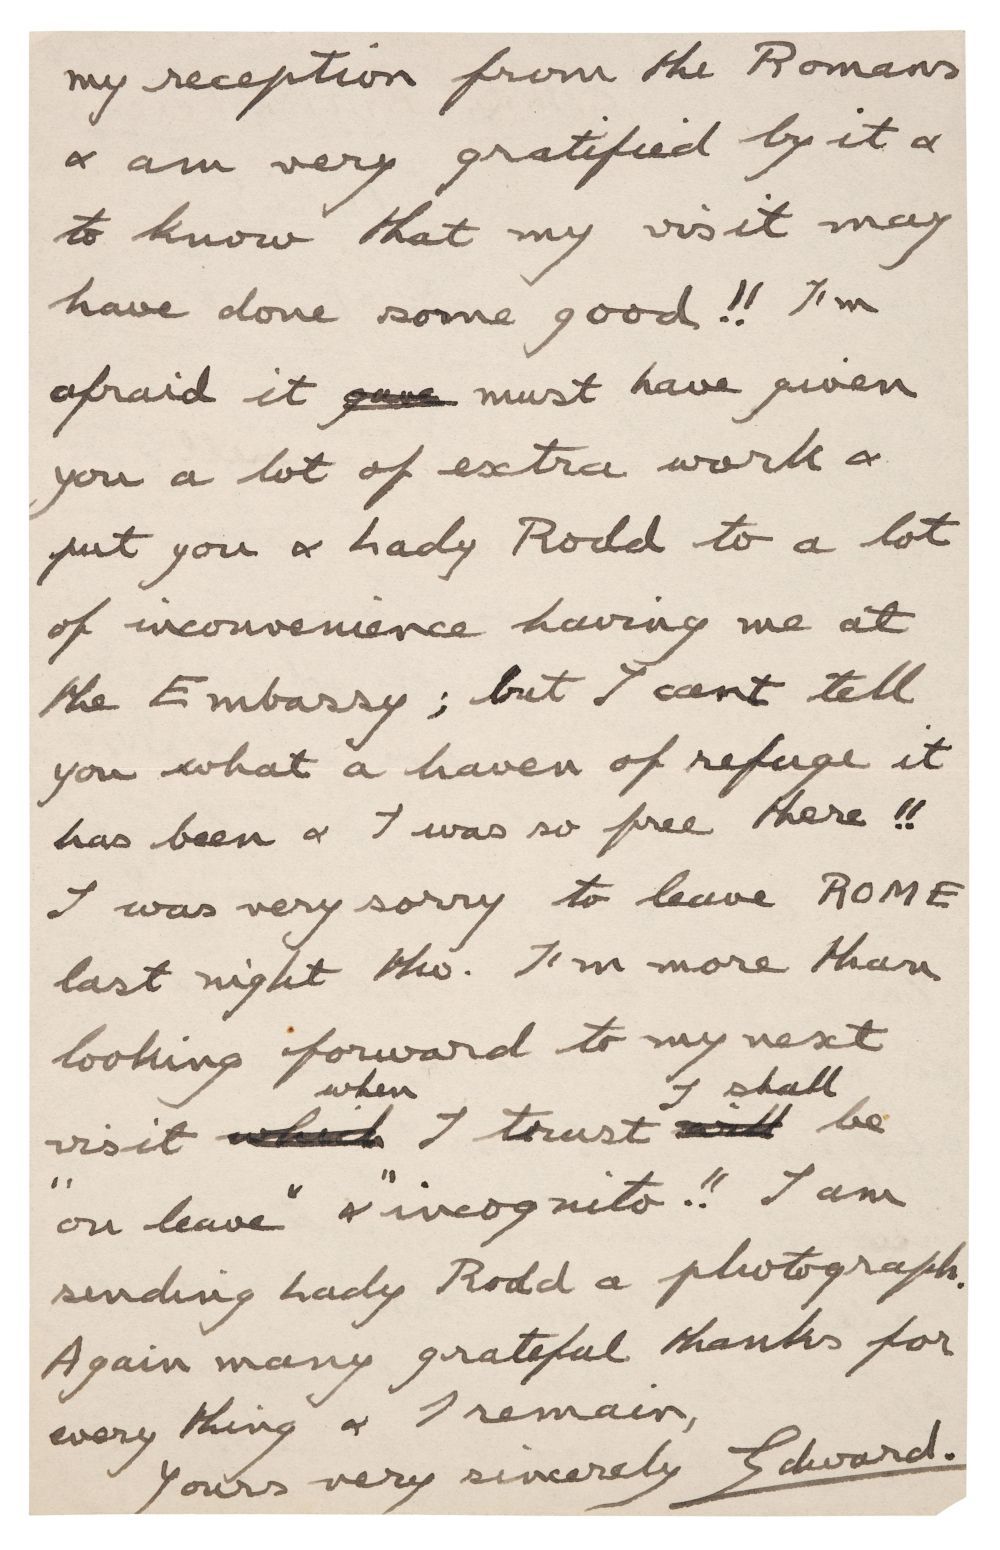 my reception from the Romans
& am very gratified by it &
to know that my visit may
have done some good!! I'm
afraid it gave must have given
you a lot of extra work &
put you & Lady Rodd to a lot
of inconvenience having me at
the Embassy; but I cant tell
you what a haven of refuge it
has been & I was so free there!!
I was very sorry to leave ROME
last night tho. I'm more than
looking forward to my next
when I shall
visit which I trust will be
"on leave" & "incognito"!! I am
sending Lady Rodd a photograph.
Again many grateful thanks for
every thing & I remain,
Yours very sincerely Edward.